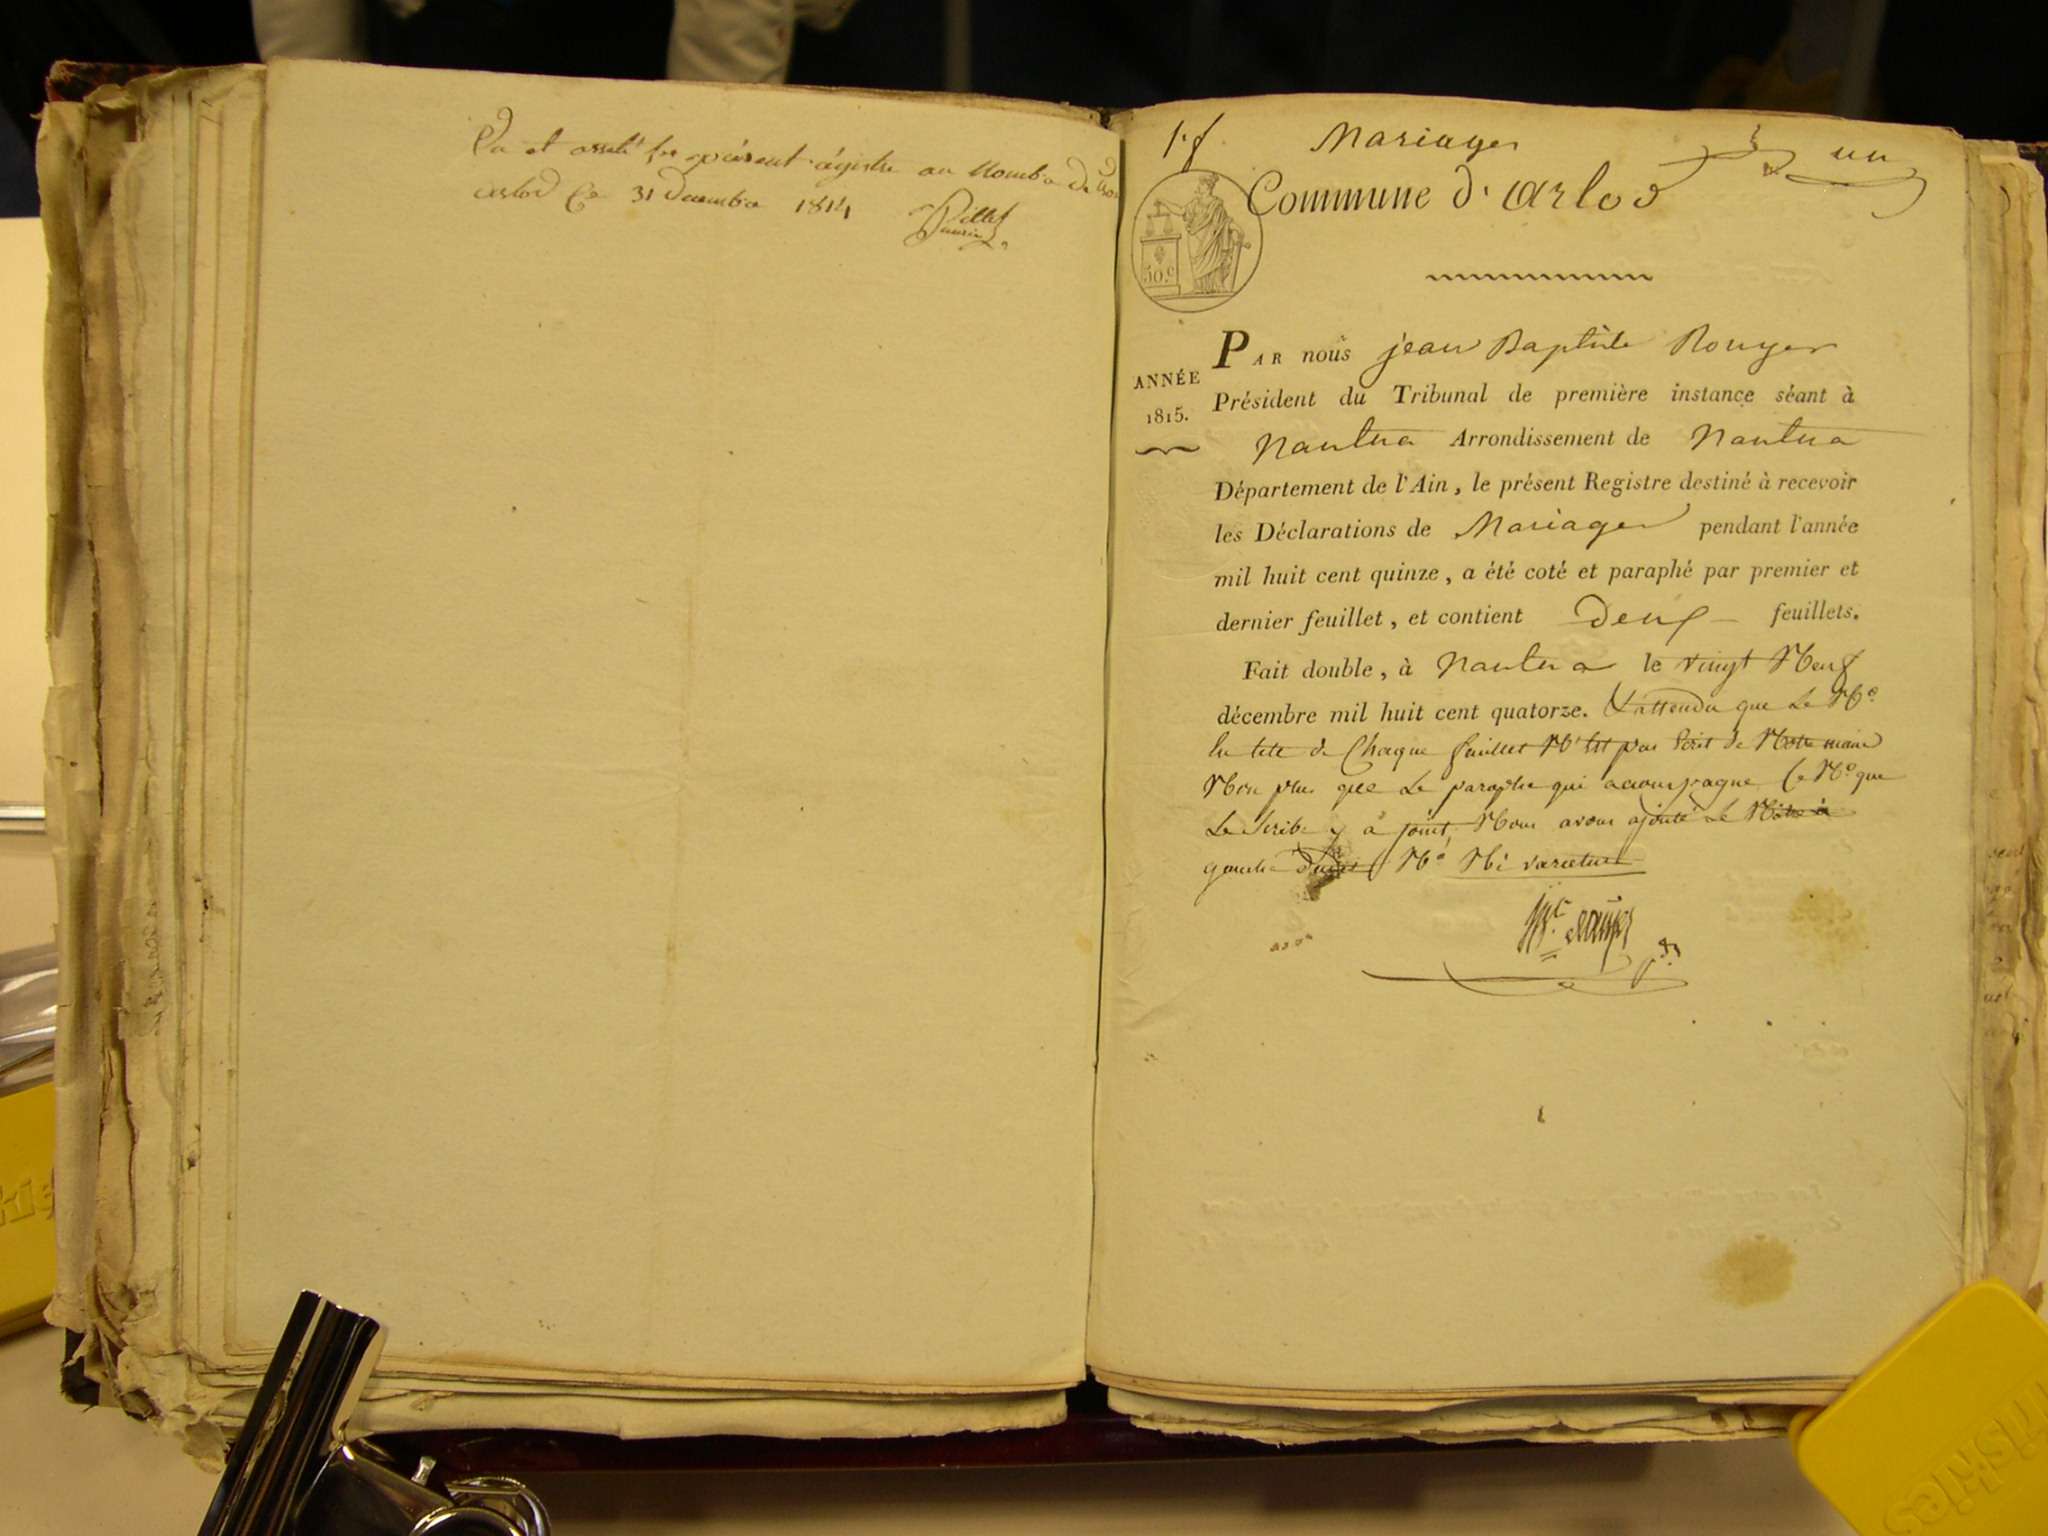 Vu et arreté le présent régistre au Nombre de trois
arlod Ce 31 Decembre 1814 Pillet
1.f.
Mariages
un
Commune d'arlod
50.c
ANNÉE
1815.
PAR nous jean Baptiste Rouyer
Président du Tribunal de première instance séant à
Nantua Arrondissement de Nantua
Département de l'Ain, le présent Registre destiné à recevoir
les Déclarations de Mariages pendant l'année
mil huit cent quinze, a été coté et paraphé par premier et
dernier feuillet, et contient Deux feuillets.
Fait double, à Nantua le vingt Neuf
décembre mil huit cent quatorze. & attendu que Le No
En tete de Chaque feuillet N'est pas Ecrit de Notre main
Non plus que Le paraphe qui accompagne Ce No que
Le Scribe y a joint, Nous avons ajouté Le Nôtre à
gauche Dudit No Ne varietur